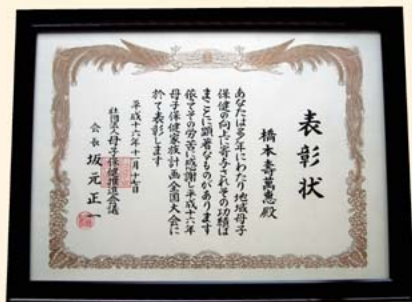 表彰状
橋本壽萬惠殿
あなたは多年にわたり地域母子
保健の向上に寄与されその功績は
まことに顕著なものがあります
依てその労苦に感謝し平成十六年
母子保健家族計画全国大会に
於て表彰します
平成十六年十一月十七日
社団法人母子保健推進会議
会長 坂元正一